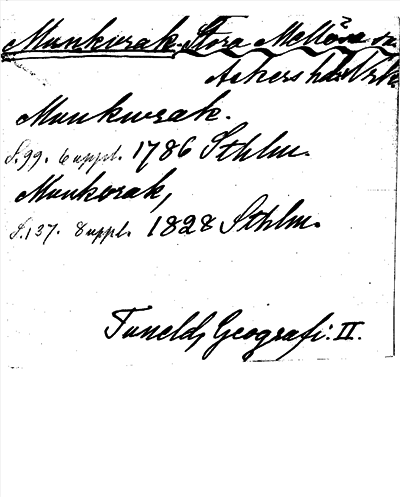 Munkorak. Stora Mellösa sn
Askers hd Nrk
Munkwrak.
S. 99. 6 uppl. 1786 Sthlm.
Munkorak,
S. 137. 8 uppl. 1828 Sthlm.
Tuneld, Geografi. II.